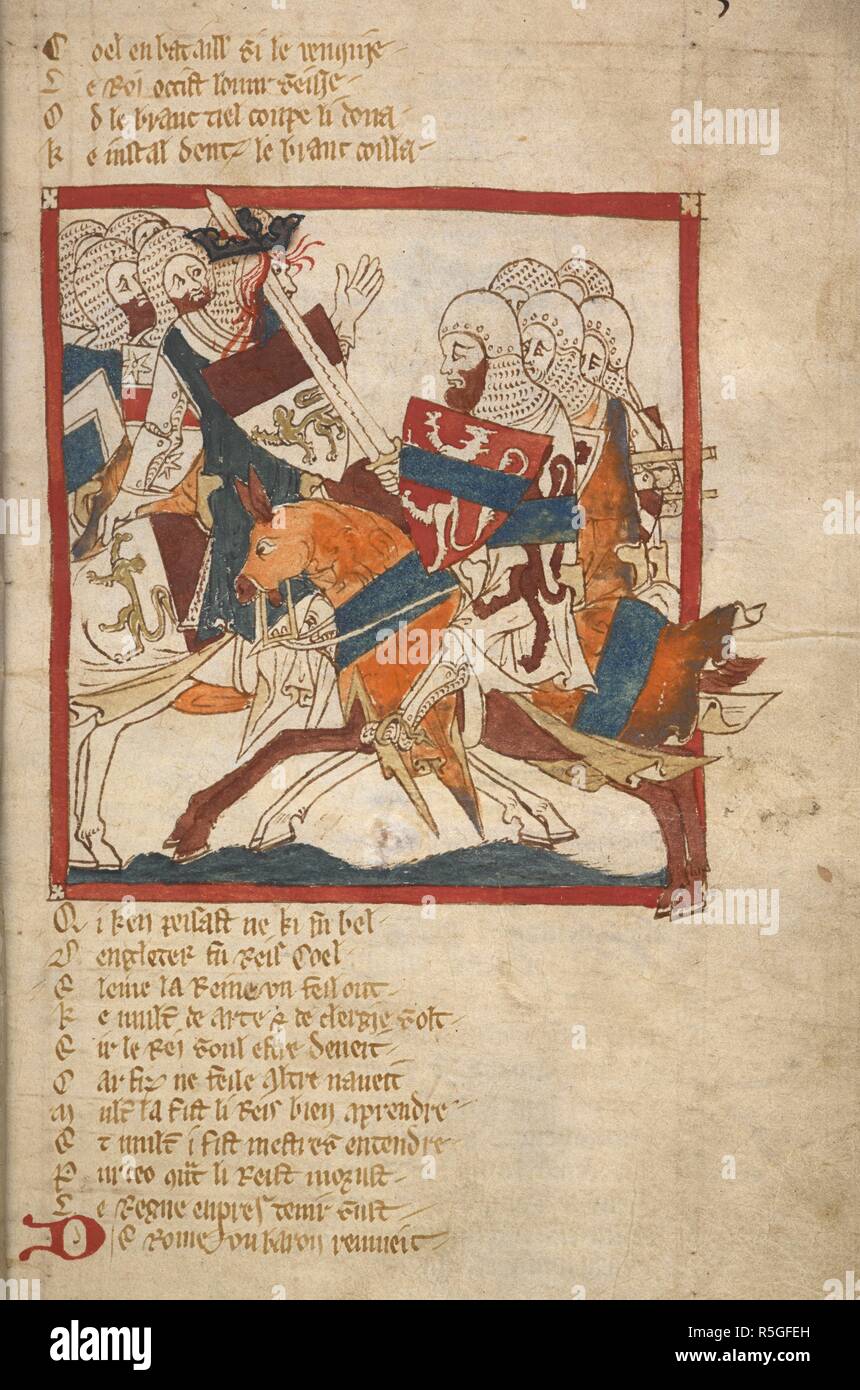 C oel en bataill si le venquie
L e Roi occist lour seisie
O d le branc tiel coupe li dona
k e instal dentz le branc colla
Q i ken peisast ne ki fu bel
D engleter fu Reis Coel
E leine la Reine vn feil out
k e mult de arte & de clergie sout
E ir le Roi soul estre deueit
C ar fiz ne feile altre naueit
M ult la fist li Reis bien aprendre
E t mult i fist mestres entendre
P ur ceo qe li Reist morust
L e Regne enpres tenir sust
D E Rome vn baron reuueit
alamy
alamy
Image ID: R5GFEH
www.alamy.com